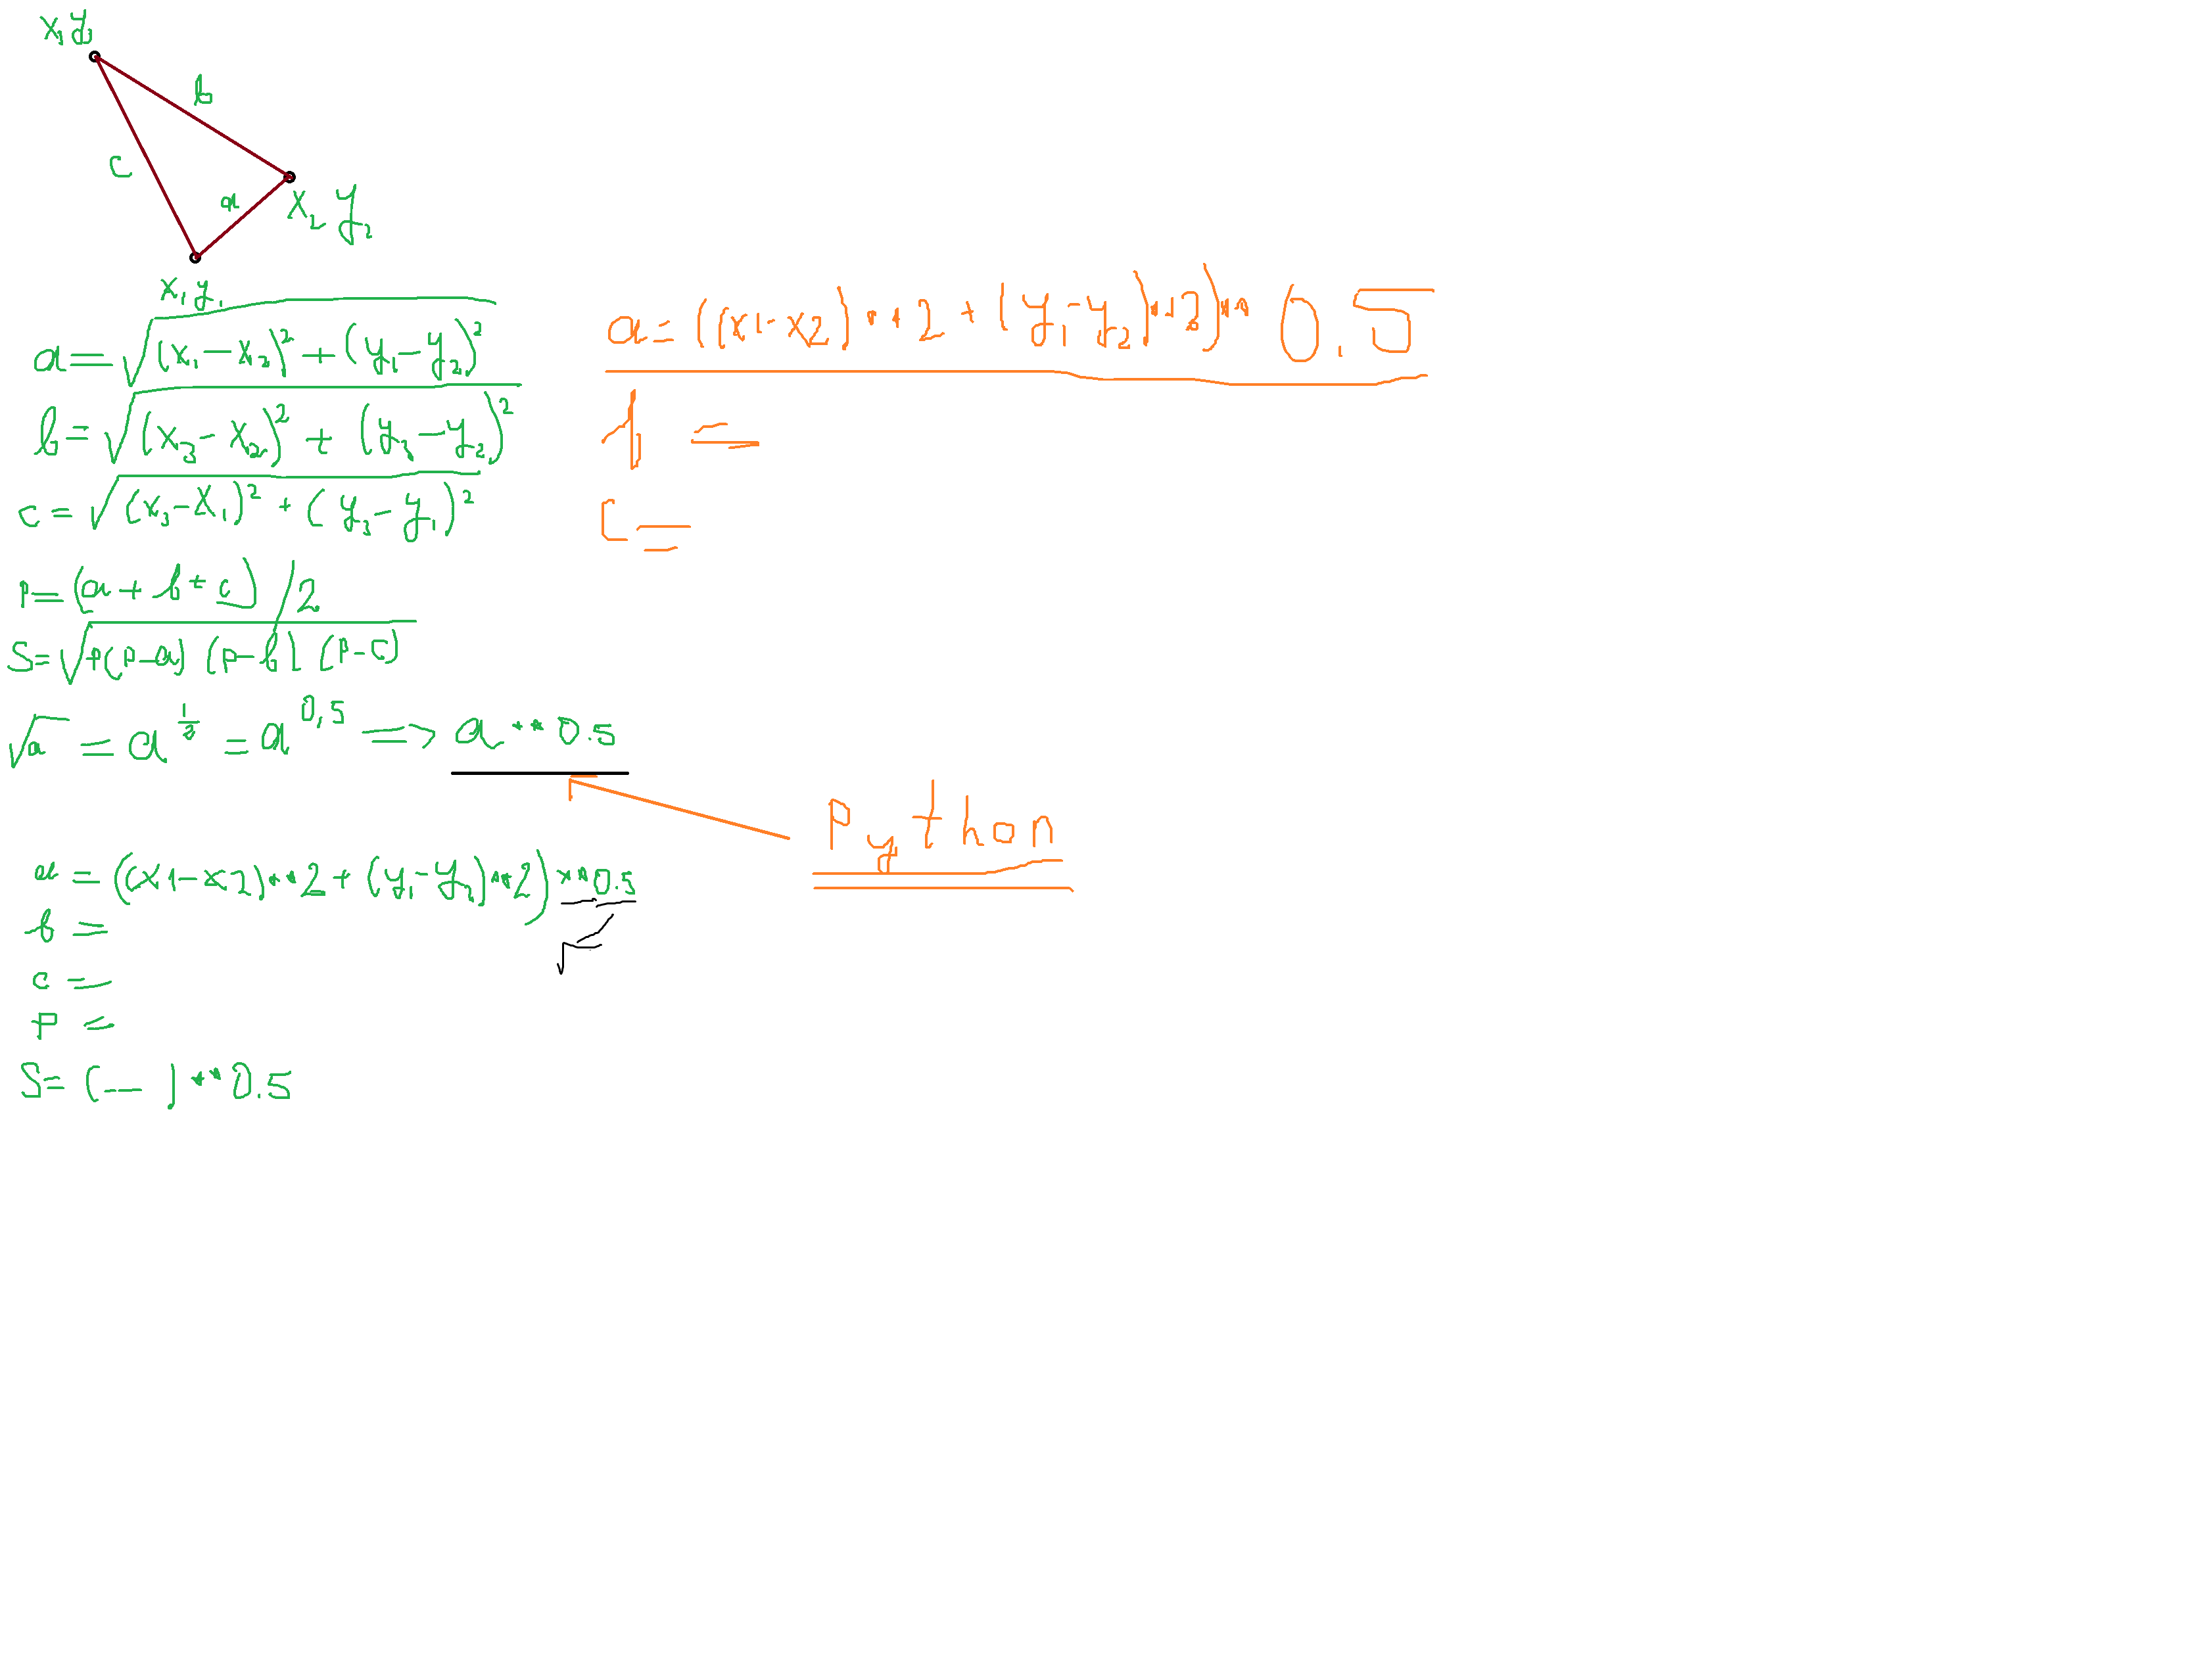 x₃ y₃
b
c
a
x₂ y₂
x₁ y₁
a = √((x₁ - x₂)² + (y₁ - y₂)²)
b = √((x₃ - x₂)² + (y₃ - y₂)²)
c = √((x₃ - x₁)² + (y₃ - y₁)²)
p = (a + b + c) / 2
S = √(p(p-a) (p-b) (p-c))
√a = a^(1/2) = a^0,5 => a**0.5
a = ((x1-x2)**2 + (y₁-y₂)**2)**0.5
√
b =
c =
p =
S = (— )**0.5
a = ((x1-x2)**2 + (y₁-y₂)**2)**0.5
b =
c =
Python